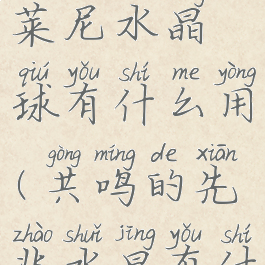 莱尼水晶
qiú yǒu shí me yòng
球有什么用
gòng míng de xiān
(共鸣的先
zhào shuǐ jīng yǒu shí
兆水晶有什